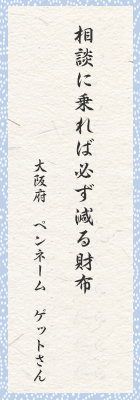 相談に乗れば必ず減る財布
大阪府 ペンネーム ゲットさん